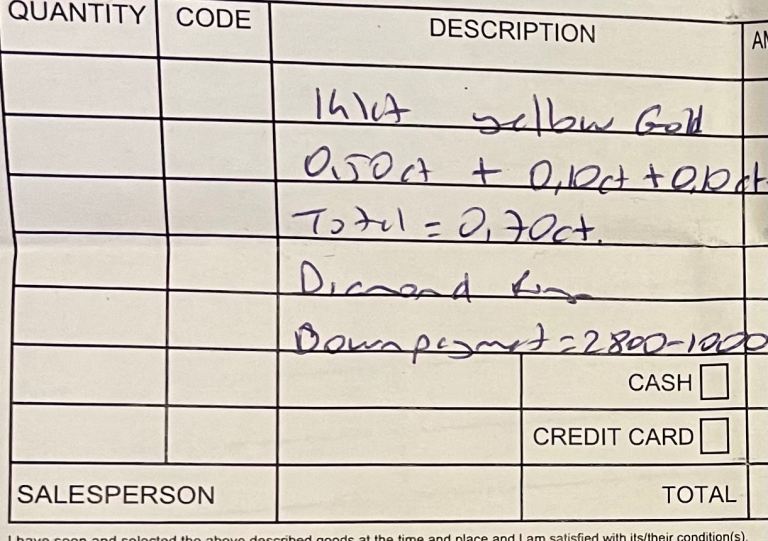 QUANTITY CODE DESCRIPTION
14kt yellow Gold
0,50ct + 0,10ct + 0,10ct
Total = 0,70ct.
Diamond Ring
Downpayment = 2800-1000
CASH
CREDIT CARD
SALESPERSON TOTAL
I have seen and selected the above described goods at the time and place and I am satisfied with its/their condition(s).